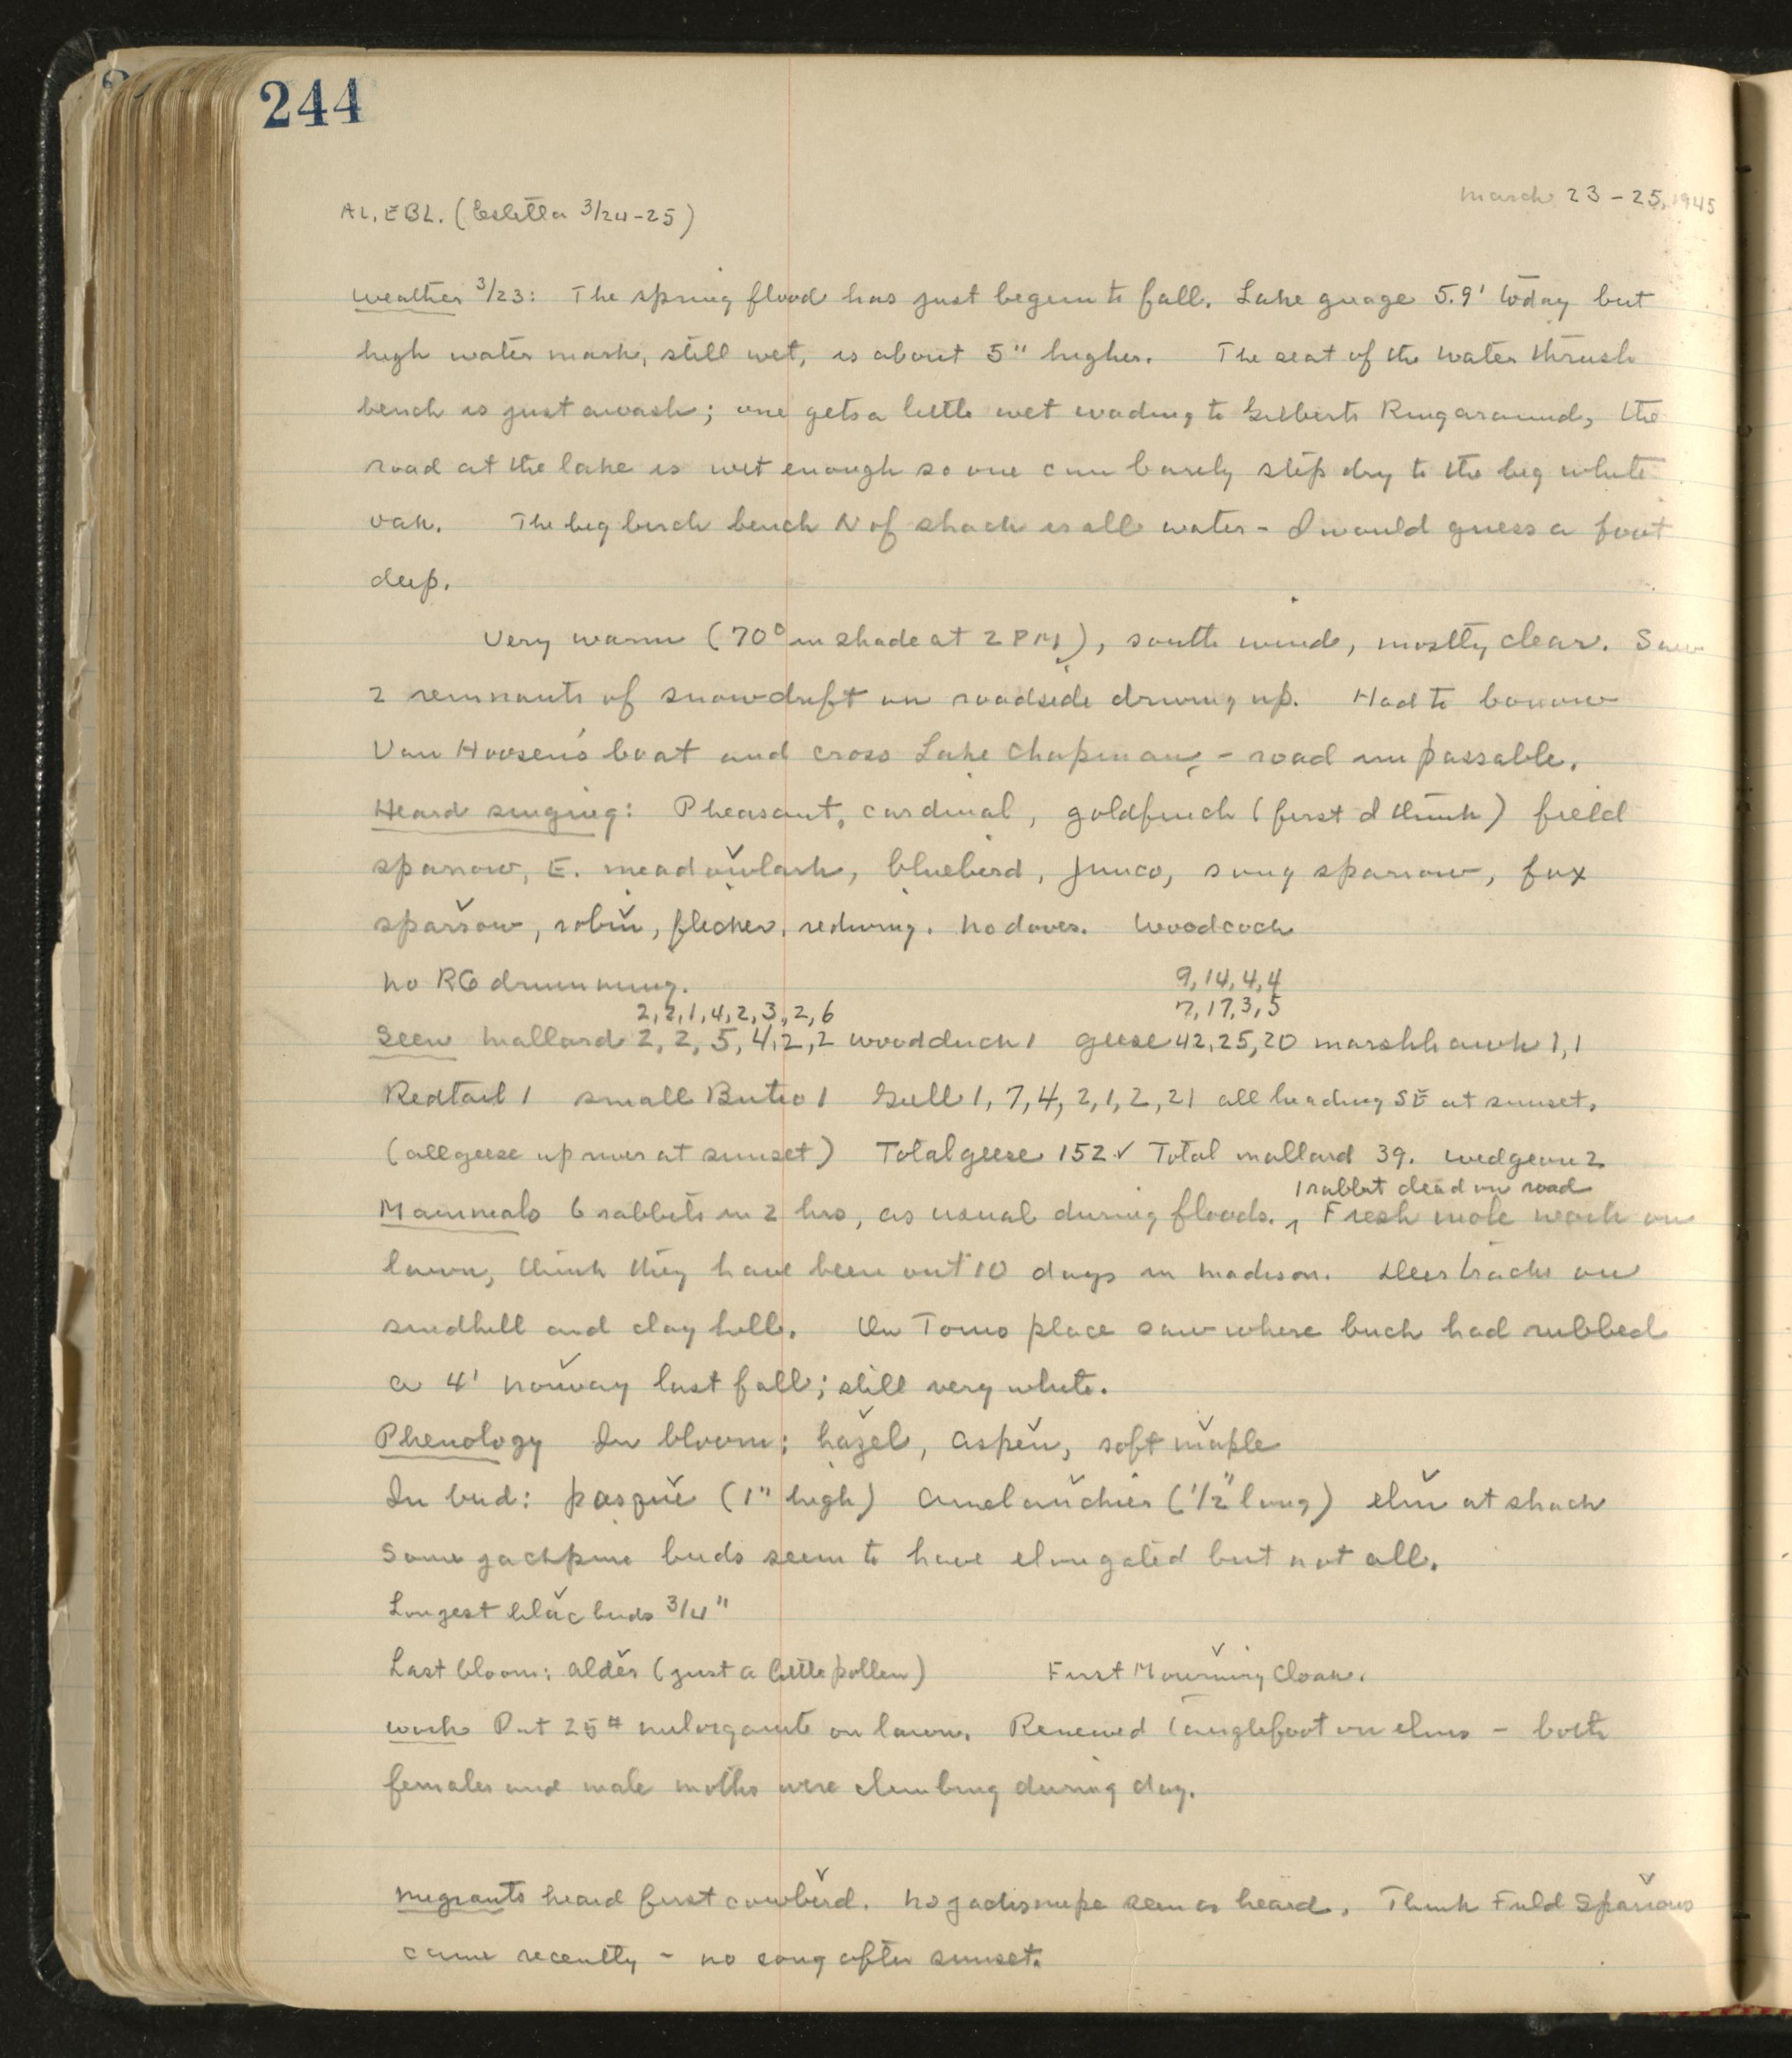 244
March 23-25, 1945
AL, EBL. (Estella 3/24-25)
Weather 3/23: The spring flood has just begun to fall. Lake guage 5.9' today but
high water mark, still wet, is about 5" higher. The seat of the water thrush
bench is just awash; one gets a little wet wading to Gilberts Ringaround, the
road at the lake is wet enough so one can barely step dry to the big white
oak. The big birch bench N of shack is all water - I would guess a foot
deep.
Very warm (70° in shade at 2 PM), south wind, mostly clear. Saw
2 remnants of snowdrift on roadside driving up. Had to borrow
Van Hoosen's boat and cross Lake Chapman, - road impassable.
Heard singing: Pheasant, cardinal, goldfinch (first I think) field
sparrow, E. meadowlark, bluebird, junco, song sparrow, fox
sparrow, robin, flicker, redwing. No doves. Woodcock
No RG drumming.
9, 14, 4, 4
2, 2, 1, 4, 2, 3, 2, 6 7, 17, 3, 5
Seen Mallard 2, 2, 5, 4, 2, 2 woodduck 1 geese 42, 25, 20 marshhawk 1, 1
Redtail 1 small Buteo 1 Gull 1, 7, 4, 2, 1, 2, 21 all heading SE at sunset.
(all geese up river at sunset) Total geese 152 ✓ Total mallard 39. Widgeon 2
1 rabbit dead on road
Mammals 6 rabbits in 2 hrs, as usual during floods. Fresh mole work on
lawn, think they have been out 10 days in Madison. Deer tracks on
sandhill and clay hill. On Toms place saw where buck had rubbed
a 4' norway last fall; still very white.
Phenology In bloom: hazel, aspen, soft maple
In bud: pasque (1" high) Amelanchier (1/2" long) elm at shack
Some jackpine buds seem to have elongated but not all.
Longest lilac buds 3/4"
Last bloom: alder (just a little pollen) First Mourning Cloak.
Work Put 25# milorganite on lawn. Renewed Tanglefoot on elms - both
females and male moths were climbing during day.
Migrants heard first cowbird. No jacksnipe seen or heard. Think Field Sparrows
came recently - no song after sunset.